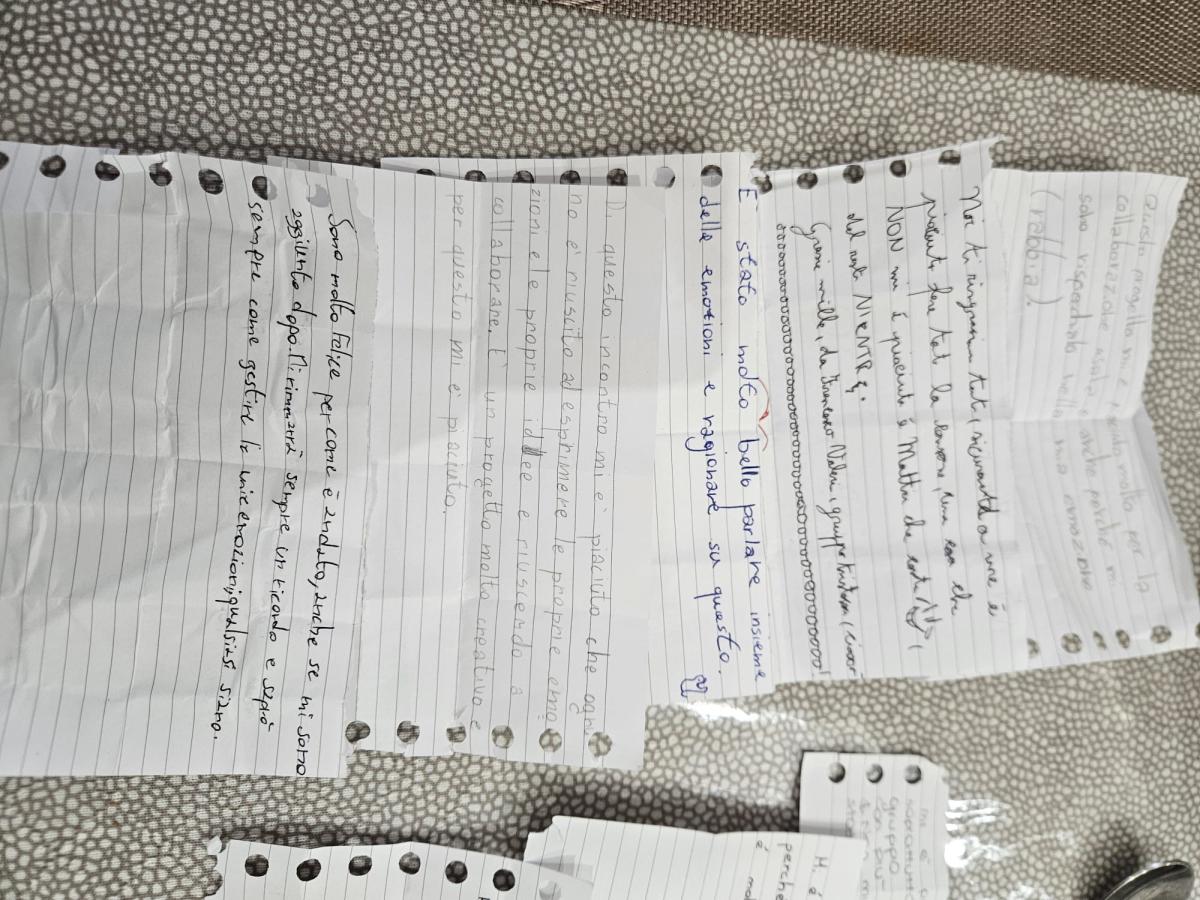 Questo progetto mi è piaciuto molto per la
collaborazione usata e anche perché mi
sono rispecchiata nella mia emozione
(rabbia).
Noi ti ringraziamo tutti, sicuramente a me è
piaciuto fare tutta la lezione, una cosa che
NON mi è piaciuta è Mattia che
del resto NIENTE.
Grazie mille, da Francesco gruppo tristezza
È stato molto bello parlare insieme
delle emozioni e ragionare su questo.
Di questo incontro mi è piaciuto che ognu
no è riuscito ad esprimere le proprie emo
zioni e le proprie idee e riuscendo a
collaborare. È un progetto molto creativo e
per questo mi è piaciuto.
Sono molto felice per come è andato, anche se mi sono
aggiunta dopo. Mi rimarrà sempre un ricordo e saprò
sempre come gestire le mie emozioni, qualsiasi siano.
mi è
soprattutto
gruppo
Mi è
perché
è